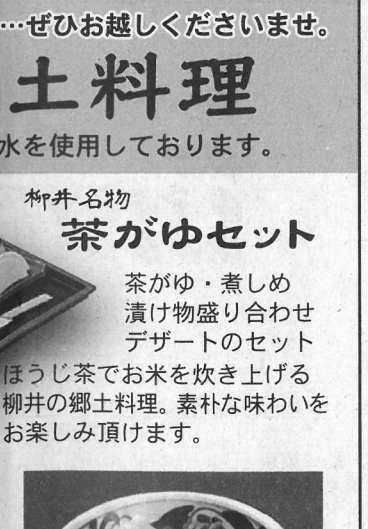 …ぜひお越しくださいませ。
土料理
水を使用しております。
柳井名物
茶がゆセット
茶がゆ・煮しめ
漬け物盛り合わせ
デザートのセット
ほうじ茶でお米を炊き上げる
柳井の郷土料理。素朴な味わいを
お楽しみ頂けます。